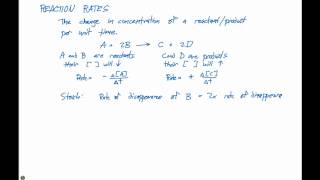 REACTION RATES
The change in concentration of a reactant/product
per unit time.
A + 2B → C + 2D
A and B are reactants
their [ ] will ↓
Rate = - Δ[A]/Δt
C and D are products
their [ ] will ↑
Rate = + Δ[C]/Δt
Stoich: Rate of disappearance of B = 2x rate of disappearance